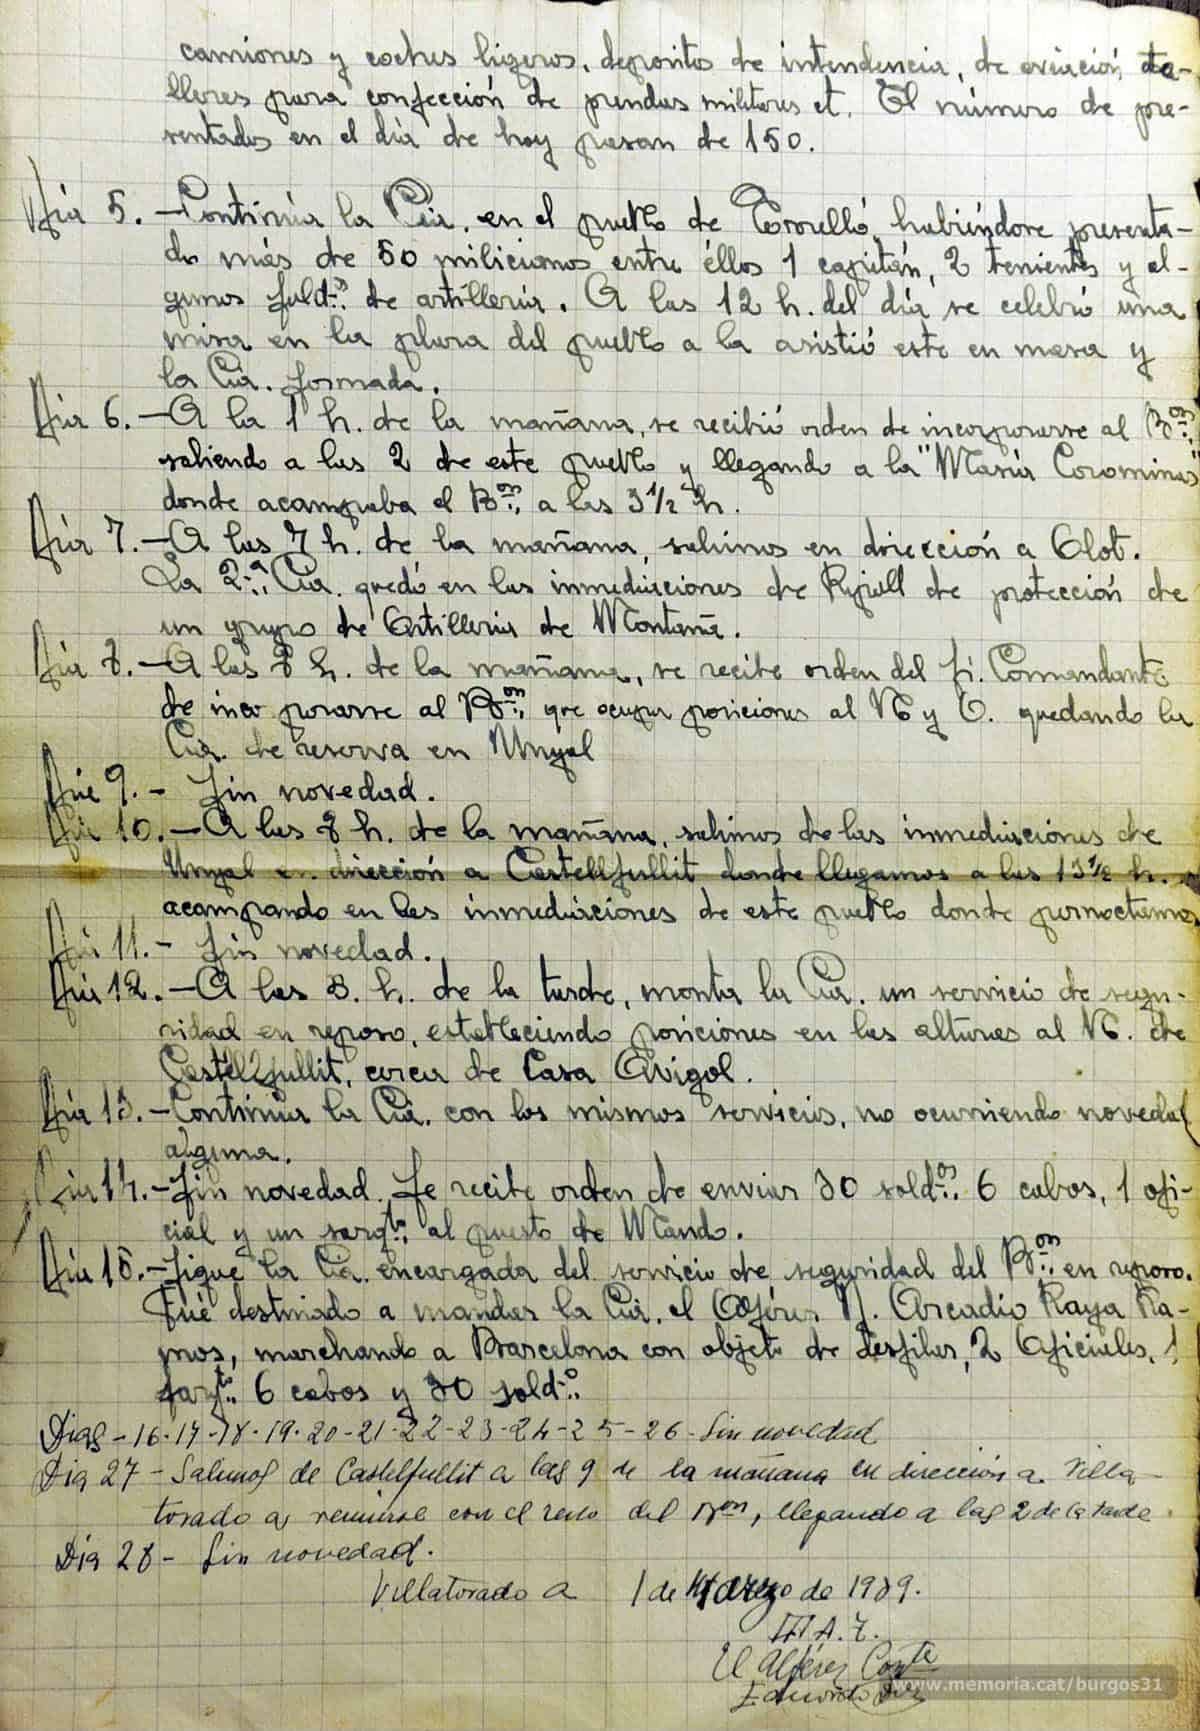 camiones y coches ligeros, depositos de intendencia, de aviación ta-
lleres para confección de prendas militares et. El número de pre-
sentados en el día de hoy pasan de 150.
Día 5. -Continúa la Cía. en el pueblo de Torelló, habiéndose presenta-
do más de 50 milicianos entre éllos 1 capitán, 2 tenientes y al-
gunos de artillería. A las 12 h. del día, se celebró una
misa en la plaza del pueblo a la asistió este en masa y
la Cía. formada.
Día 6. -A la 1 h. de la mañana, se recibió orden de incorporarse al Bon.
saliendo a las 2 de este pueblo y llegando a la "Masía Corominas"
donde acampaba el Bon. a las 3 1/2 h.
Día 7. -A las 7 h. de la mañana, salimos en dirección a Olot.
La 2.a Cía. quedó en las inmediaciones de Ripoll de protección de
un grupo de Artillería de Montaña.
Día 8. -A las 8 h. de la mañana, se recibe orden del Sr. Comandante
de inco porarse al Bon. que ocupa posiciones al N y O. quedando la
Cía. de reserva en
Día 9. - Sin novedad.
Día 10. -A las 8 h. de la mañana, salimos de las inmediaciones de
en dirección a Castellfullit donde llegamos a las 13 1/2 h.
acampando en las inmediaciones de este pueblo donde pernoctamos.
Día 11. - Sin novedad.
Día 12. -A las 3. h. de la tarde, monta la Cía. un servicio de segu-
ridad en reposo, estableciendo posiciones en las alturas al N. de
Castellfullit, cerca de Casa Avigol.
Día 13. -Continúa la Cía. con los mismos servicios, no ocurriendo novedad
alguna.
Día 14. -Sin novedad. Se recibe orden de enviar 30 soldos. 6 cabos, 1 ofi-
cial y un sargto. al puesto de Mando.
Día 15. -Sigue la Cía. encargada del servicio de seguridad del Bon. en reposo.
Fué destinado a mandar la Cía. el Alférez D. Arcadio Raya Ra-
mos, marchando a Barcelona con objeto de desfilar, 2 Oficiales, 1
Sargto. 6 cabos y 30 soldos.
Dias - 16-17-18-19-20-21-22-23-24-25-26- Sin novedad
Dia 27 - Salimos de Castelfullit a las 9 de la mañana en dirección a Villa-
torado a reunirse con el resto del Bon, llegando a las 2 de la tarde
Dia 28 - Sin novedad.
Villatorado a 1 de Marzo de 1939.
III A. T.
El Alférez Comte
Eduardo
www.memoria.cat/burgos31